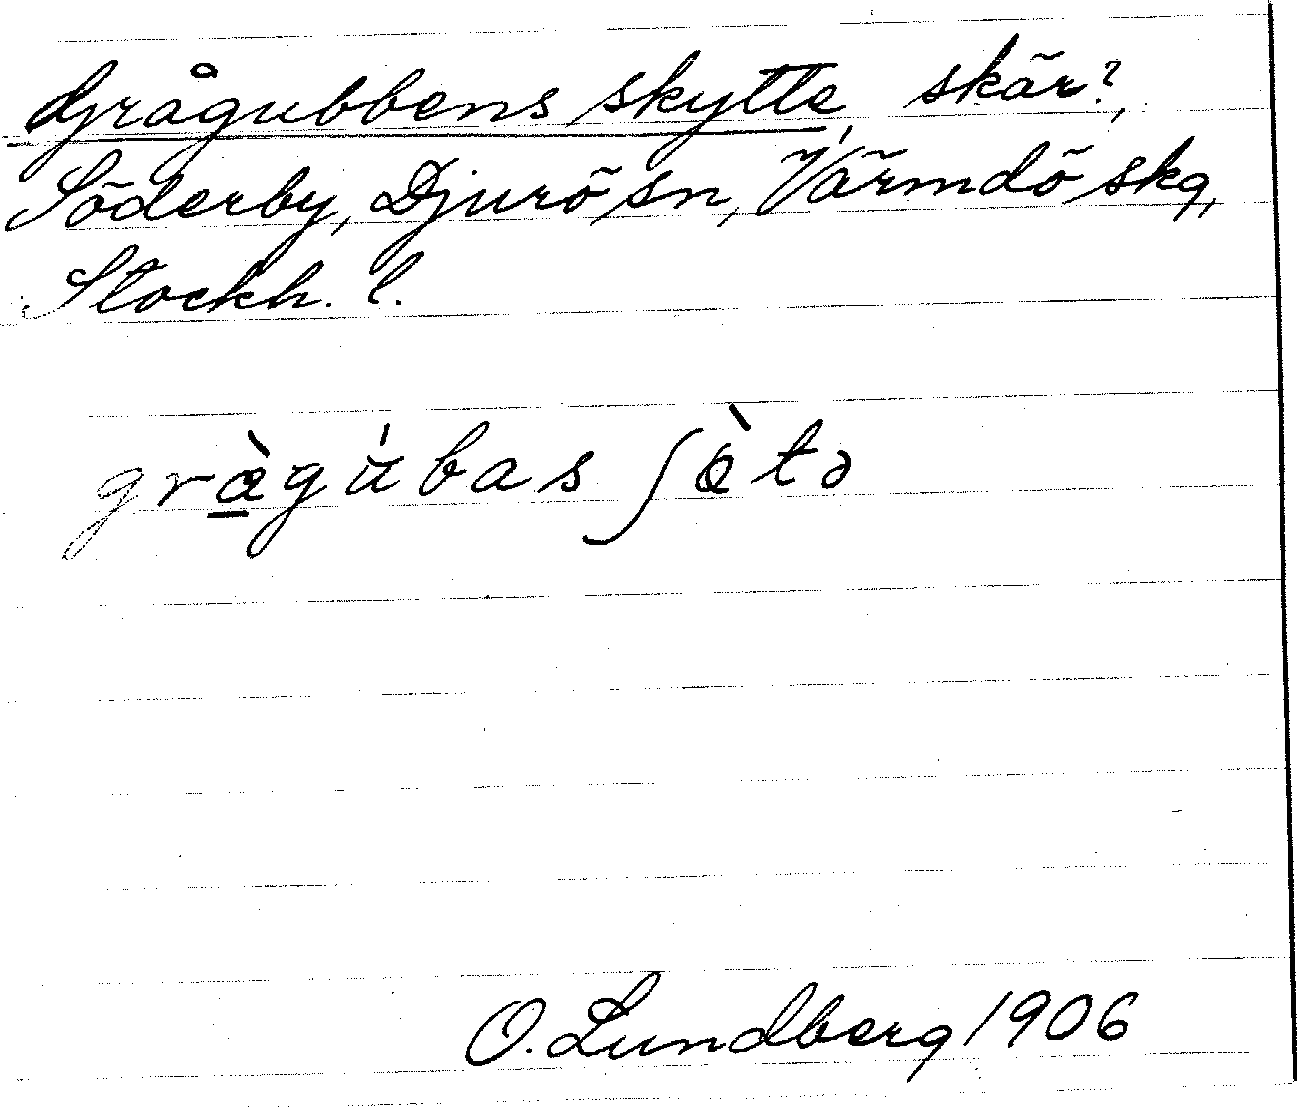 Grågubbens skytte, skär?,
Söderby, Djurö sn, Värmdö skg,
Stockh. l.
gràgúbas ʃètə
O. Lundberg 1906